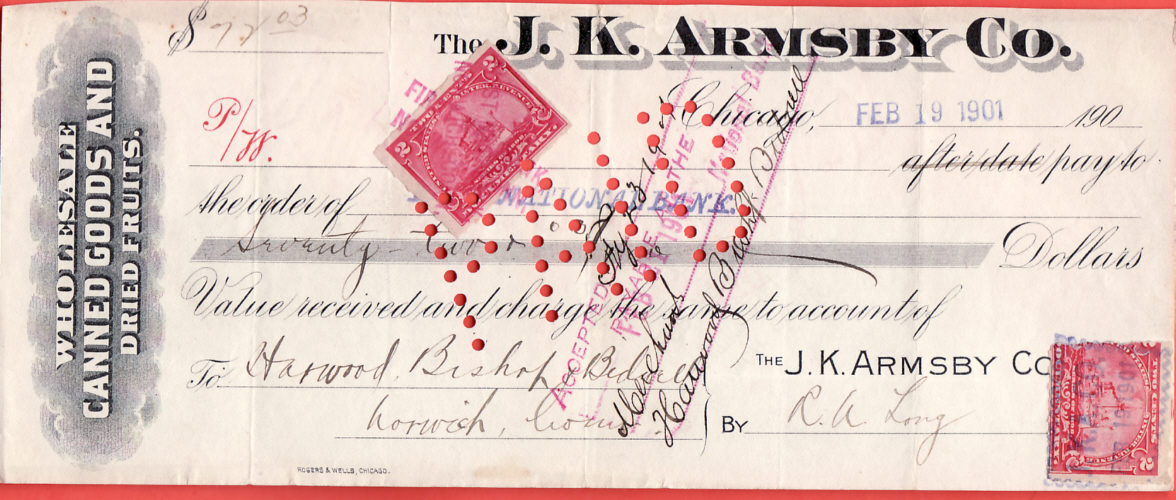 $ 72 03
The J. K. ARMSBY CO.
WHOLESALE
CANNED GOODS AND
DRIED FRUITS.
P/W.
Chicago, FEB 19 1901 190
after date pay to
the order of NATIONAL BANK.
Seventy-two & Dollars
Value received and charge the same to account of
To Harwood, Bishop
Norwich, Conn
THE J. K. ARMSBY CO
By R. A. Long
ROGERS & WELLS, CHICAGO.
ACCEPTED
PAYABLE AT THE
National Bank
Harwood Bishop
2
2
2